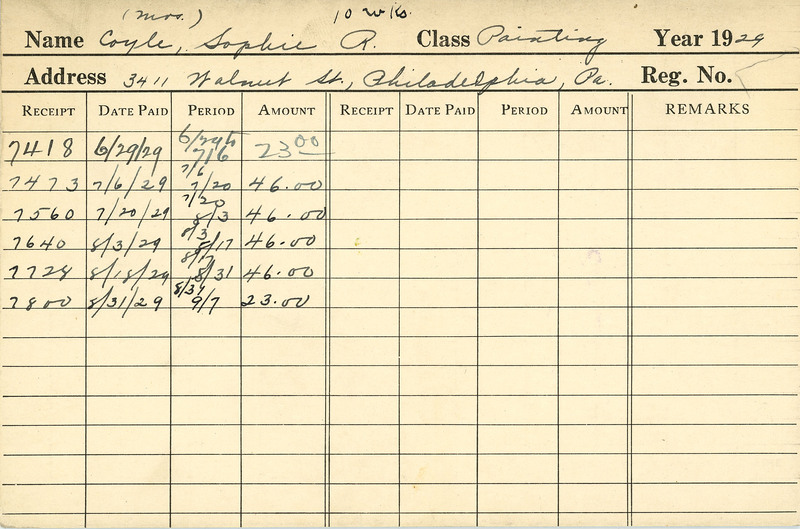 (Mrs.) 10 wks.
Name Coyle, Sophie R. Class Painting Year 1929
Address 3411 Walnut St., Philadelphia, Pa. Reg. No.
RECEIPT DATE PAID PERIOD AMOUNT RECEIPT DATE PAID PERIOD AMOUNT REMARKS
7418 6/29/29 6/29 to 7/6 23.00
7473 7/6/29 7/6 7/20 46.00
7560 7/20/29 7/20 8/3 46.00
7640 8/3/29 8/3 8/17 46.00
7728 8/18/29 8/17 8/31 46.00
7800 8/31/29 8/31 9/7 23.00